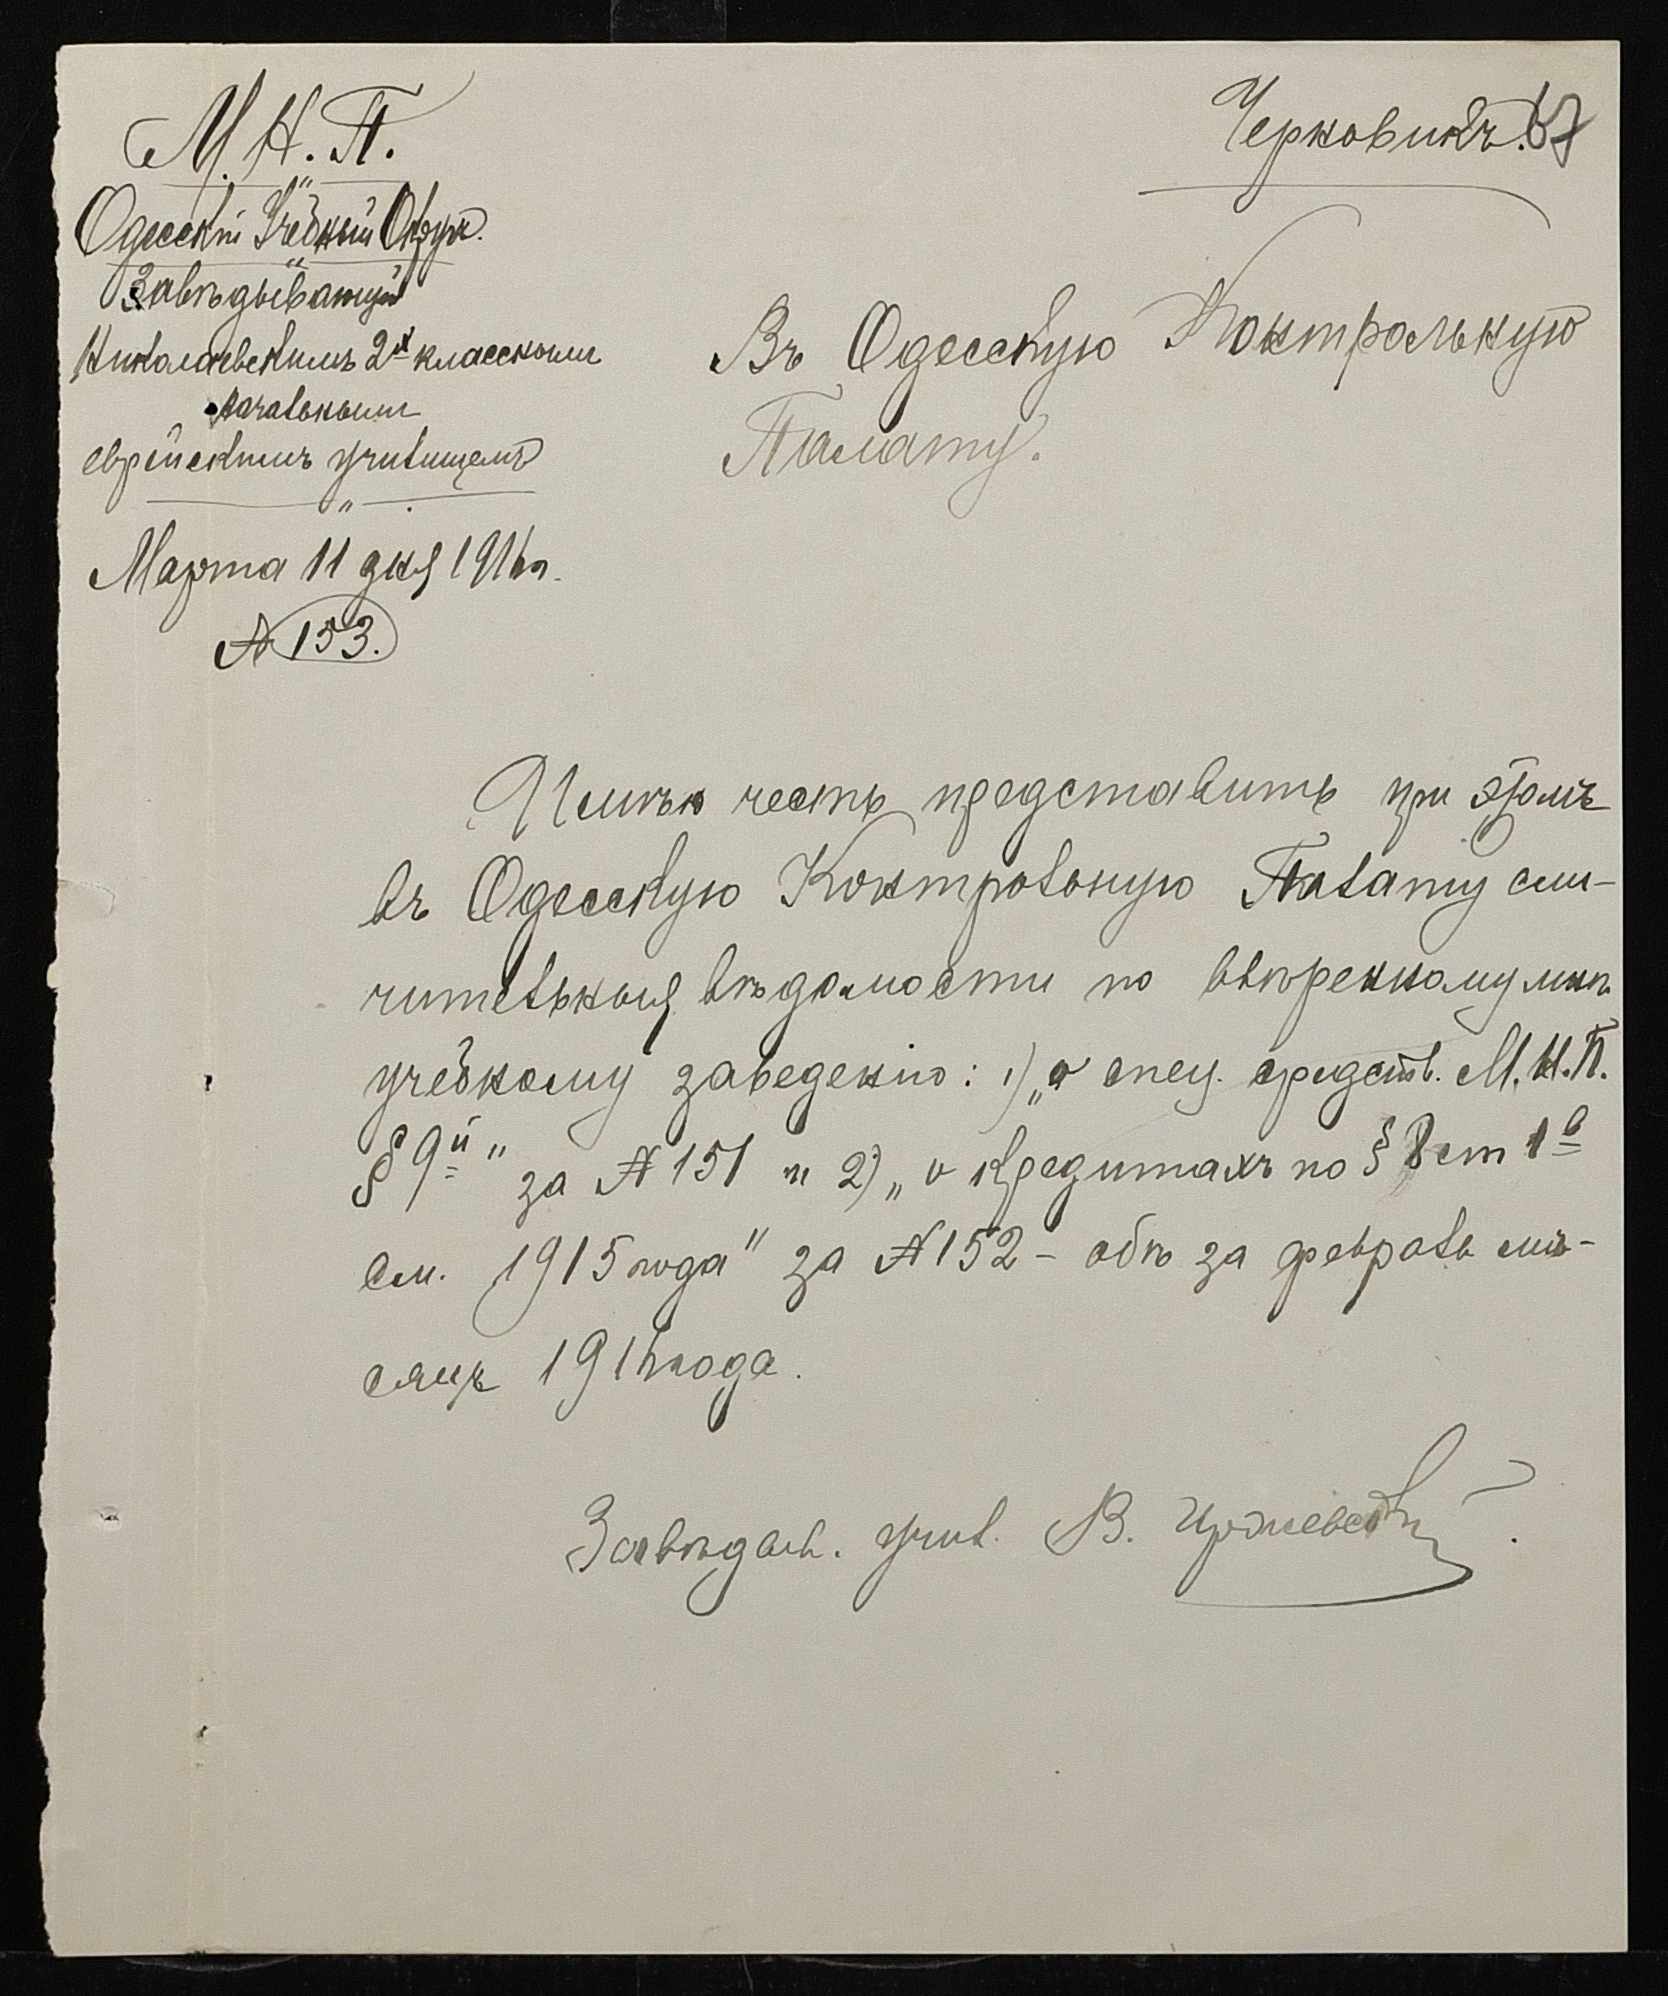 М. Н. П.
Одесскій Учебный Округ.
Завѣдывающій
Николаевскимъ 2х класснымъ
начальнымъ
еврейскимъ училищемъ
Марта 11 дня 1916 г.
№ 153.
Черновикъ. 67
Въ Одесскую Контрольную
Палату.
Имѣю честь представить при этомъ
въ Одесскую Контрольную Палату сли-
чительныя вѣдомости по ввѣренному мнѣ
учебному заведенію: 1) „о спец. средств. М. Н. П.
§ 9й" за № 151 и 2) „о кредитахъ по § 8 ст 1й
см. 1915 года" за № 152 - обѣ за февраль мѣ-
сяцъ 1916 года.
Завѣдыв. учил. В.